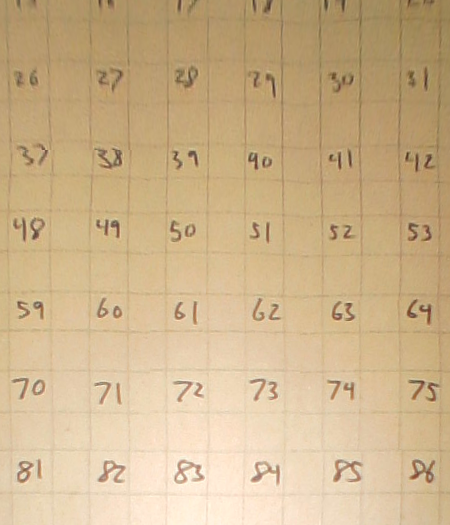 26 27 28 29 30 31
37 38 39 40 41 42
48 49 50 51 52 53
59 60 61 62 63 64
70 71 72 73 74 75
81 82 83 84 85 86